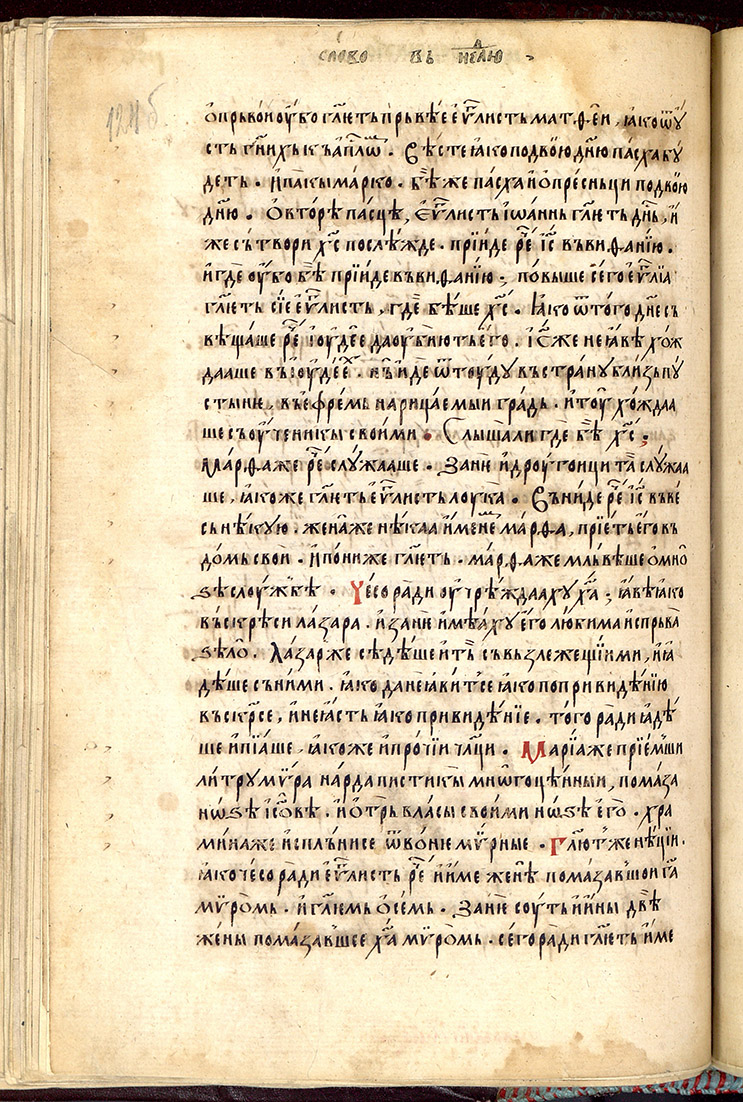 слово въ недлю
124б
ѡпрьвои оубо гл҃еть прьвѣе еѵ҃листь матѳеи , ꙗко ѿ оу
сть гн҃ихь къ апл҃ѡⷨ . Вѣсте ꙗко по двою дн҃їю пасха бу
деть . и пакы марко . бѣ же пасха и опрѣсньци по двою
дн҃їю . О вторѣ пасцѣ, еѵ҃листь їѡаннь гл҃еть дн҃ь, и
же сътвори хс҃ послѣжде . прїиде рⷱ҇е їс҃ въ виѳанїю .
и где оубо бѣ прїиде въ виѳанїю ; повыше сего еѵ҃лїа
гл҃еть сїе еѵ҃листь , где бѣше хс҃ . ꙗко ѿ того дн҃е съ
вѣщаше рⷱ҇е їоудее да оубїють его . їс҃ же не ꙗвѣ хож
дааше въ їоудеⷯе . нь иде ѿтоуду въ страну близь пу
стыне , въ ефремь нарицаемыи градь . и тоу хождаа
ше съ оученикы своими . Слышали где бѣ хс҃ ;
Марѳа же рⷱ҇е служааше . Зане и дроугоици тⷣа служаа
ше , ꙗкоже гл҃еть еѵ҃листь лоука . Вьниде рⷱ҇е їс҃ въ ве
сь нѣкую . жена же нѣкаа именеⷨ марѳа , прїеть его въ
домь свои . и пониже гл҃еть . марѳа же мльвѣше о мно
ѕѣ слоужбѣ . Чесо ради оучрѣждааху ха҃ ; ꙗвѣ ꙗко
въскрѣси лазара . и зане имѣаху его любима испрьва
ѕѣло . Лазарⷤе сѣдѣше и тъ съ възлежещїими , и ꙗ
дѣше съ ними . ꙗко да не ꙗвитсе ꙗко по привидѣнїю
въскрⷭ҇се , и нѣсть ꙗко привидѣнїе . того ради ꙗдѣ
ше и пїаше , ꙗкоже и прочїи чл҃ци . Марїа же прїемши
литру мѵра нарда пистикы мнѡгоцѣнныи , помаза
ноѕѣ їсⷭ҇овѣ . и отрь власы своими ноѕѣ его . хра
мина же исплънисе ѿ воние мѵрные . Гл҃ютⷤе нѣцїи .
ꙗко чесо ради еѵ҃листь рⷱ҇е и име женѣ помазавшои га҃
мѵромь . и гл҃емь о семь . Зане соуть и ины двѣ
жены помазавшее ха҃ мѵромь . сего ради гл҃еть име